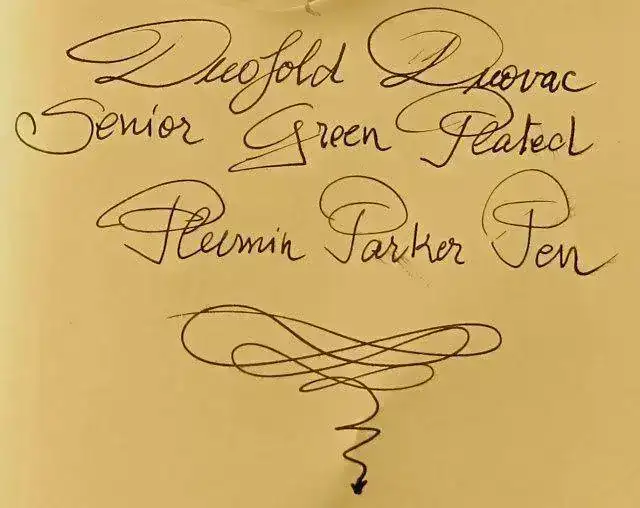 Duofold Duovac
Senior Green Plated
Plumin Parker Pen